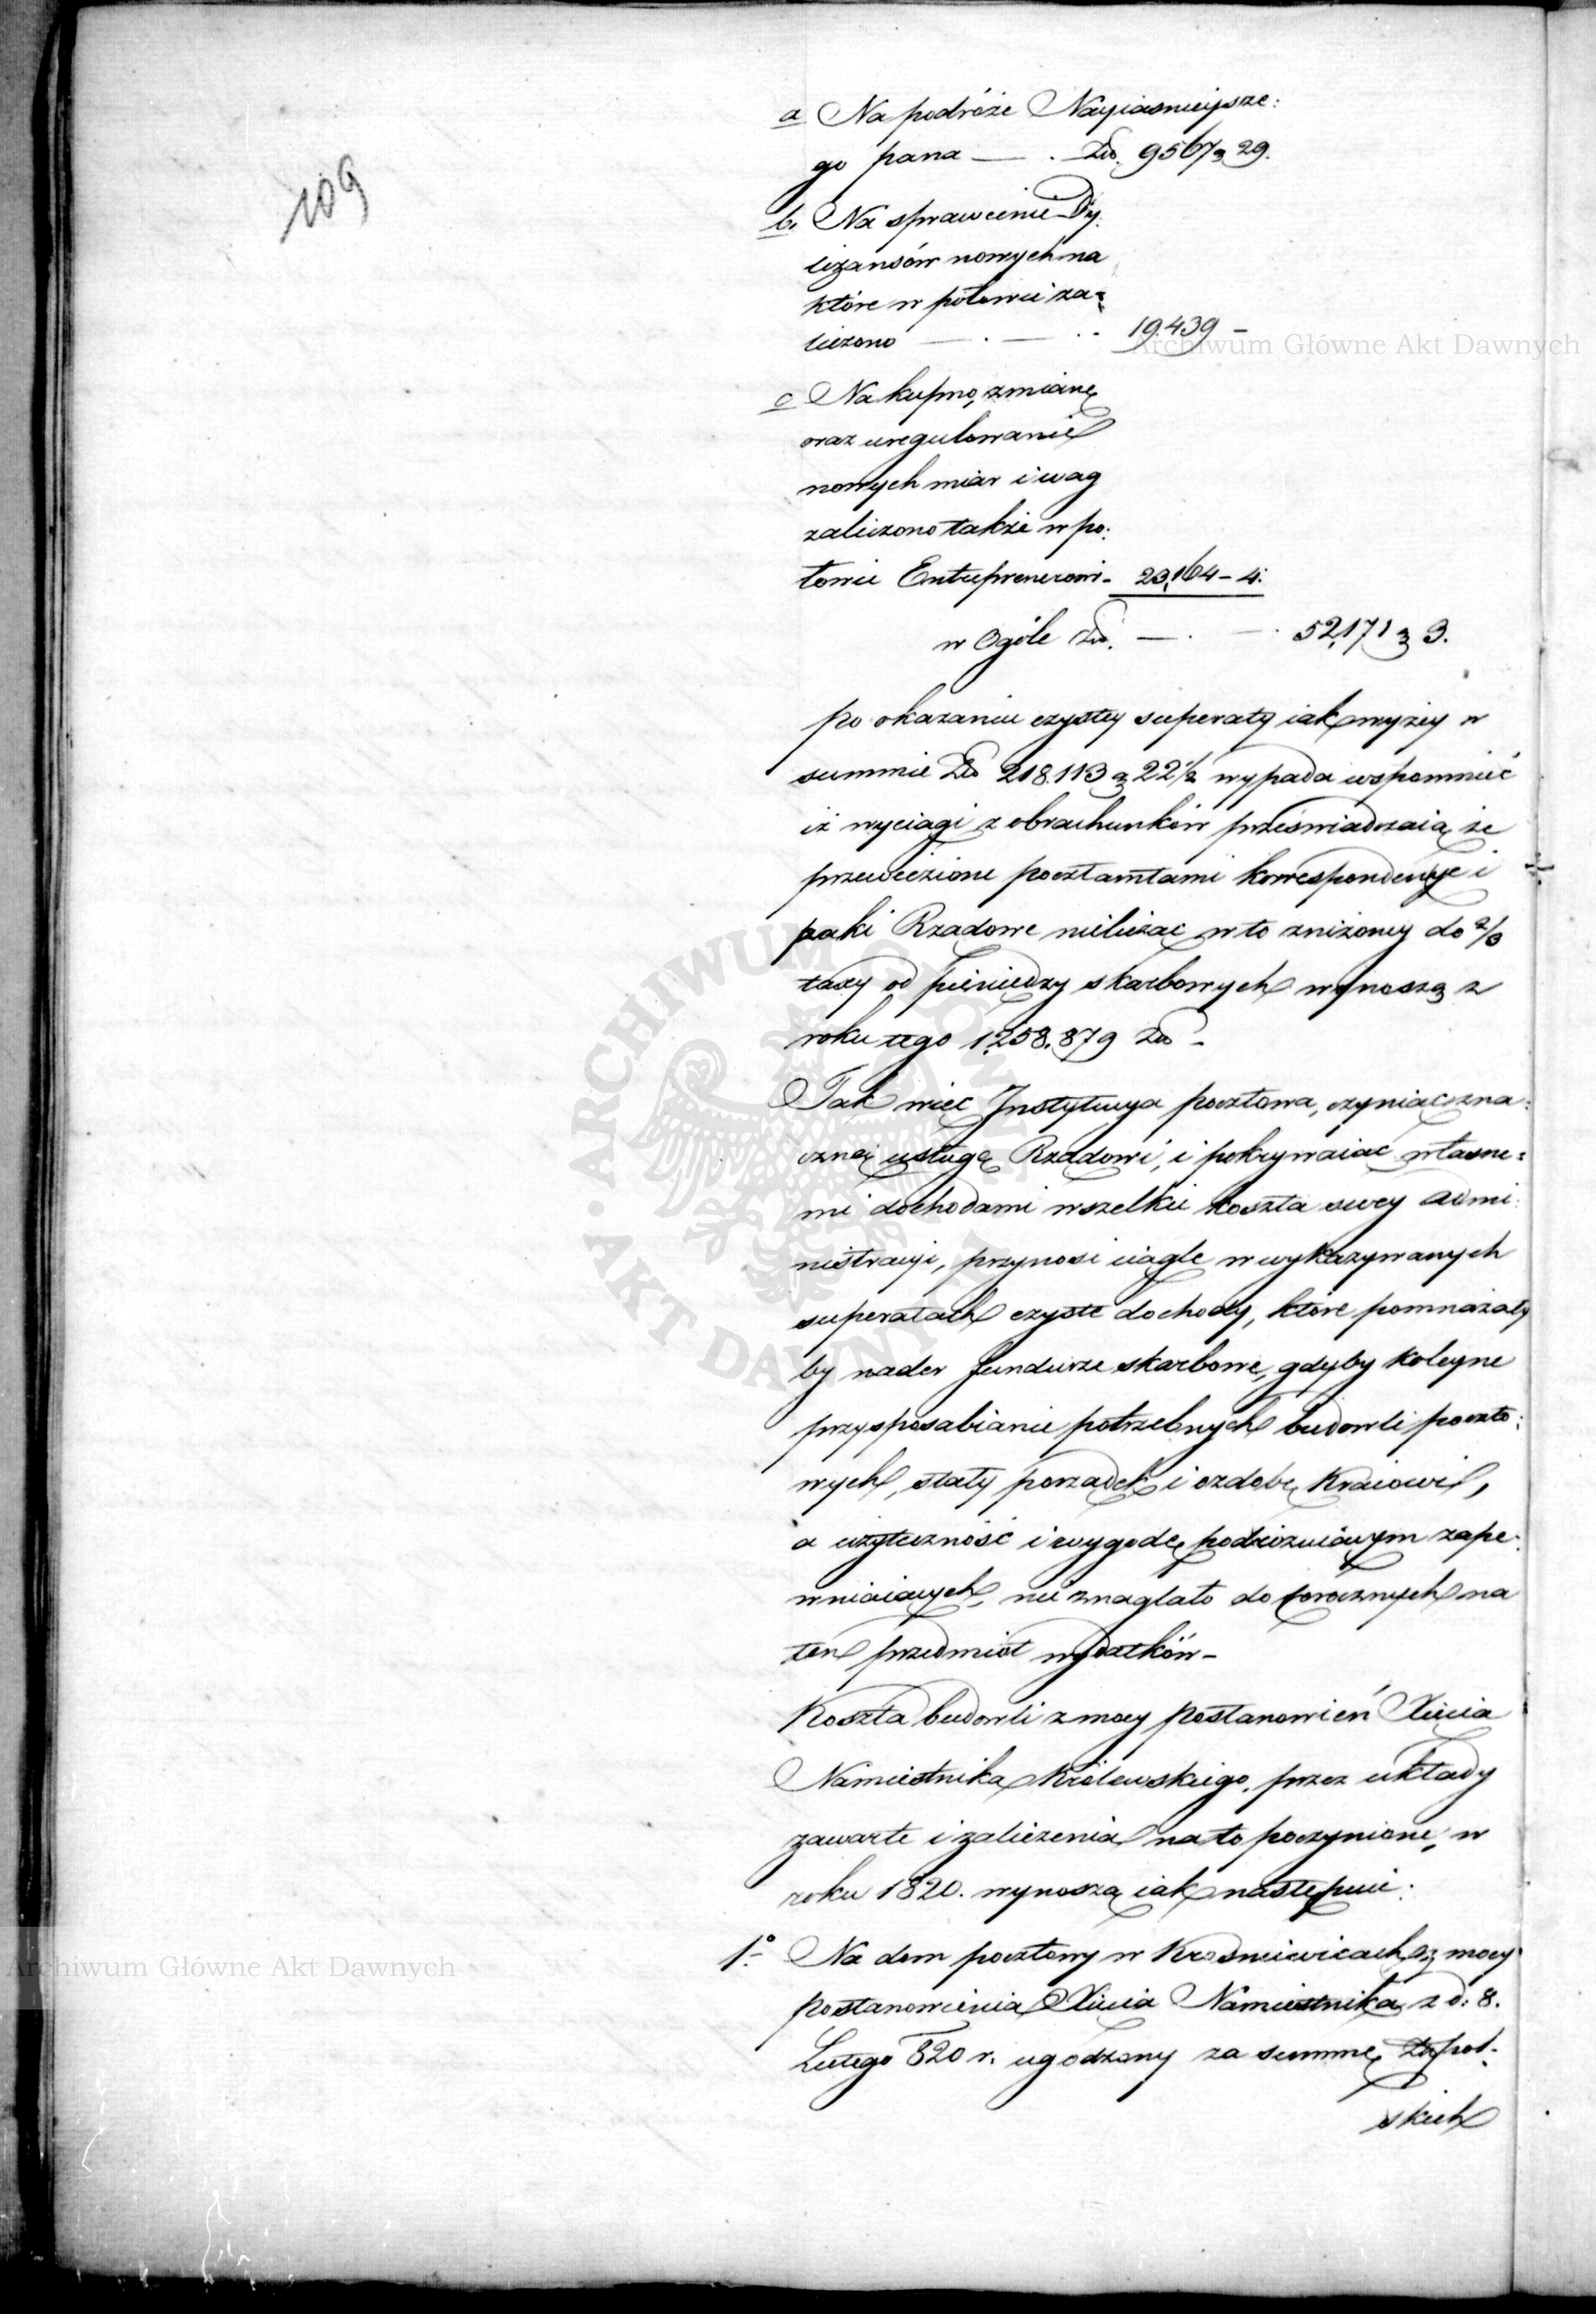 109
a Na podróże Nayiasnieysze:
go pana — . Złp. 9567 g 29.
b. Na sprawienie Dy:
liżansów nowych na
które w połowie za=
liczono — . — . . 19.439 —
c Na kupno, zmianę
oraz uregulowanie
nowych miar i wag
zaliczono także w po:
łowie Entreprenerowi - 23,164 — 4.
w Ogóle Złp. — . — . 52,171 g 3.
po okazaniu czystey superaty iak wyżey w
summie Złp 218.113 g 22½ wypada wspomnieć
iż wyciągi z obrachunków przeświadczaią że
przewiezione pocztamtami korrespondencye i
paki Rządowe nielicząc w to zniżoney do 2/3
taxy od pieniedzy skarbowych wynoszą z
roku tego 1,258.879 Złp —
Tak więc Instytucya pocztowa, czyniąc zna:
czną usługę Rządowi, i pokrywaiąc własne=
mi dochodami wszelkie koszta swey Admi:
nistracyi, przynosi ciągle w wykazywanych
superatach czyste dochody, które pomnażały
by nader fundusze skarbowe, gdyby koleyne
przysposabianie potrzebnych budowli poczto:
wych, stały porządek i ozdobę Kraiowi,
a użyteczność i wygodę podróżuiącym zape:
wniaiących, nie znaglało do corocznych na
ten przedmiot wydatków —
Koszta budowli z mocy postanowień Xięcia
Namiestnika Królewskiego, przez układy
zawarte i zaliczenia na to poczynione, w
roku 1820. wynoszą iak nastepuie:
1° Na dom pocztowy w Krośniewicach z mocy
postanowienia Xięcia Namiestnika z d: 8.
Lutego 820 r. ugodzony za summę Złp pol-
skich
Archiwum Główne Akt Dawnych
Archiwum Główne Akt Dawnych
ARCHIWUM GŁÓWNE AKT DAWNYCH